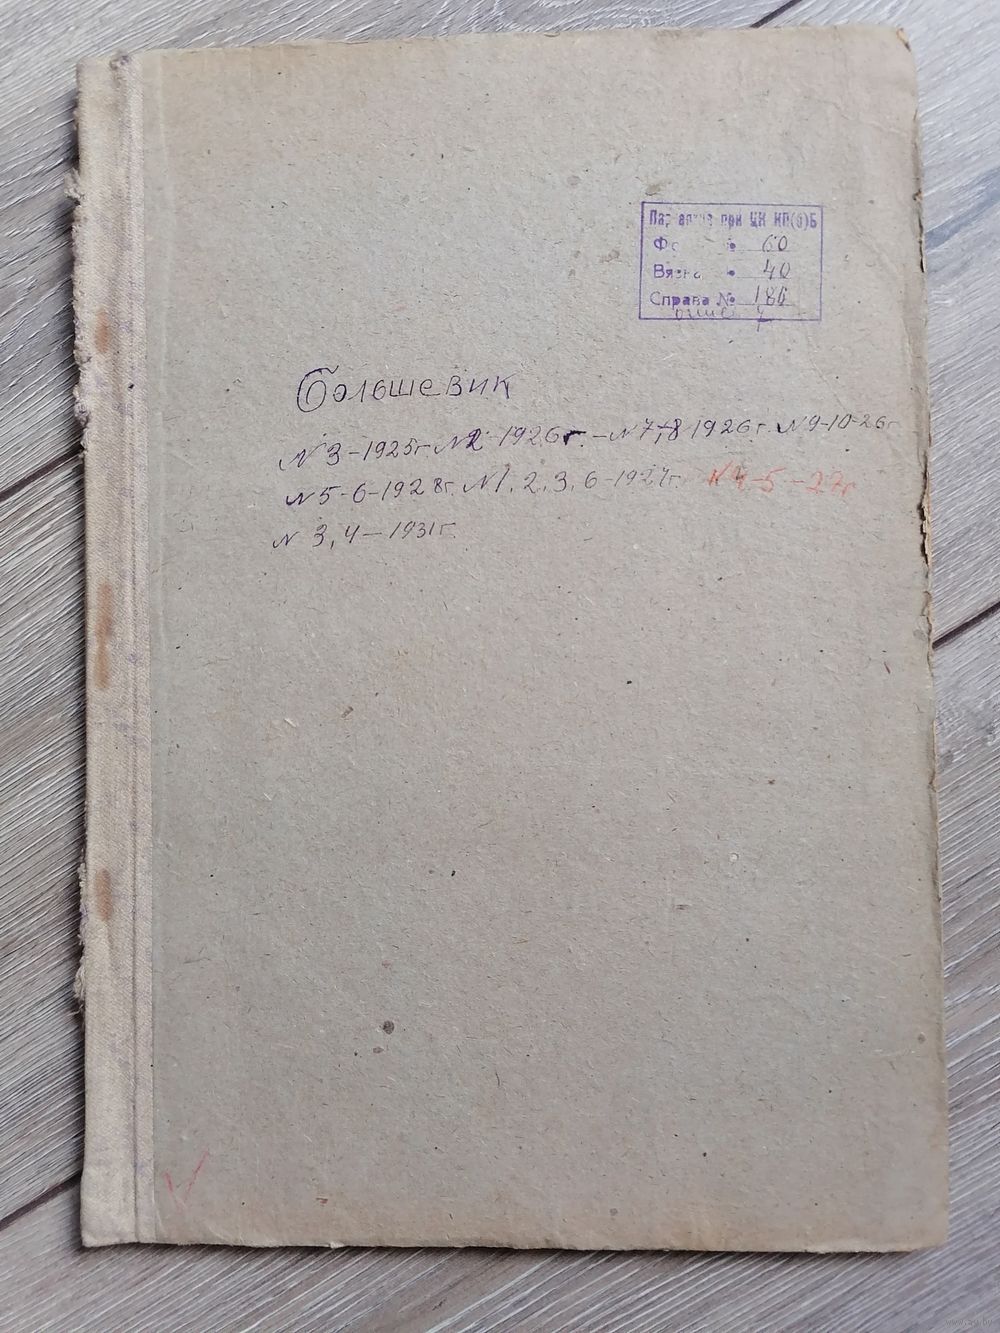 при ЦК КП(б)Б
60
40
Справа № 186
опис 7
Большевик
№ 3-1925г. № 2-1926г. - № 7,-8 1926г. № 9-10-26г
№ 5-6-1928г. № 1, 2, 3, 6-1927г. № 4-5-27г
№ 3, 4-1931г.